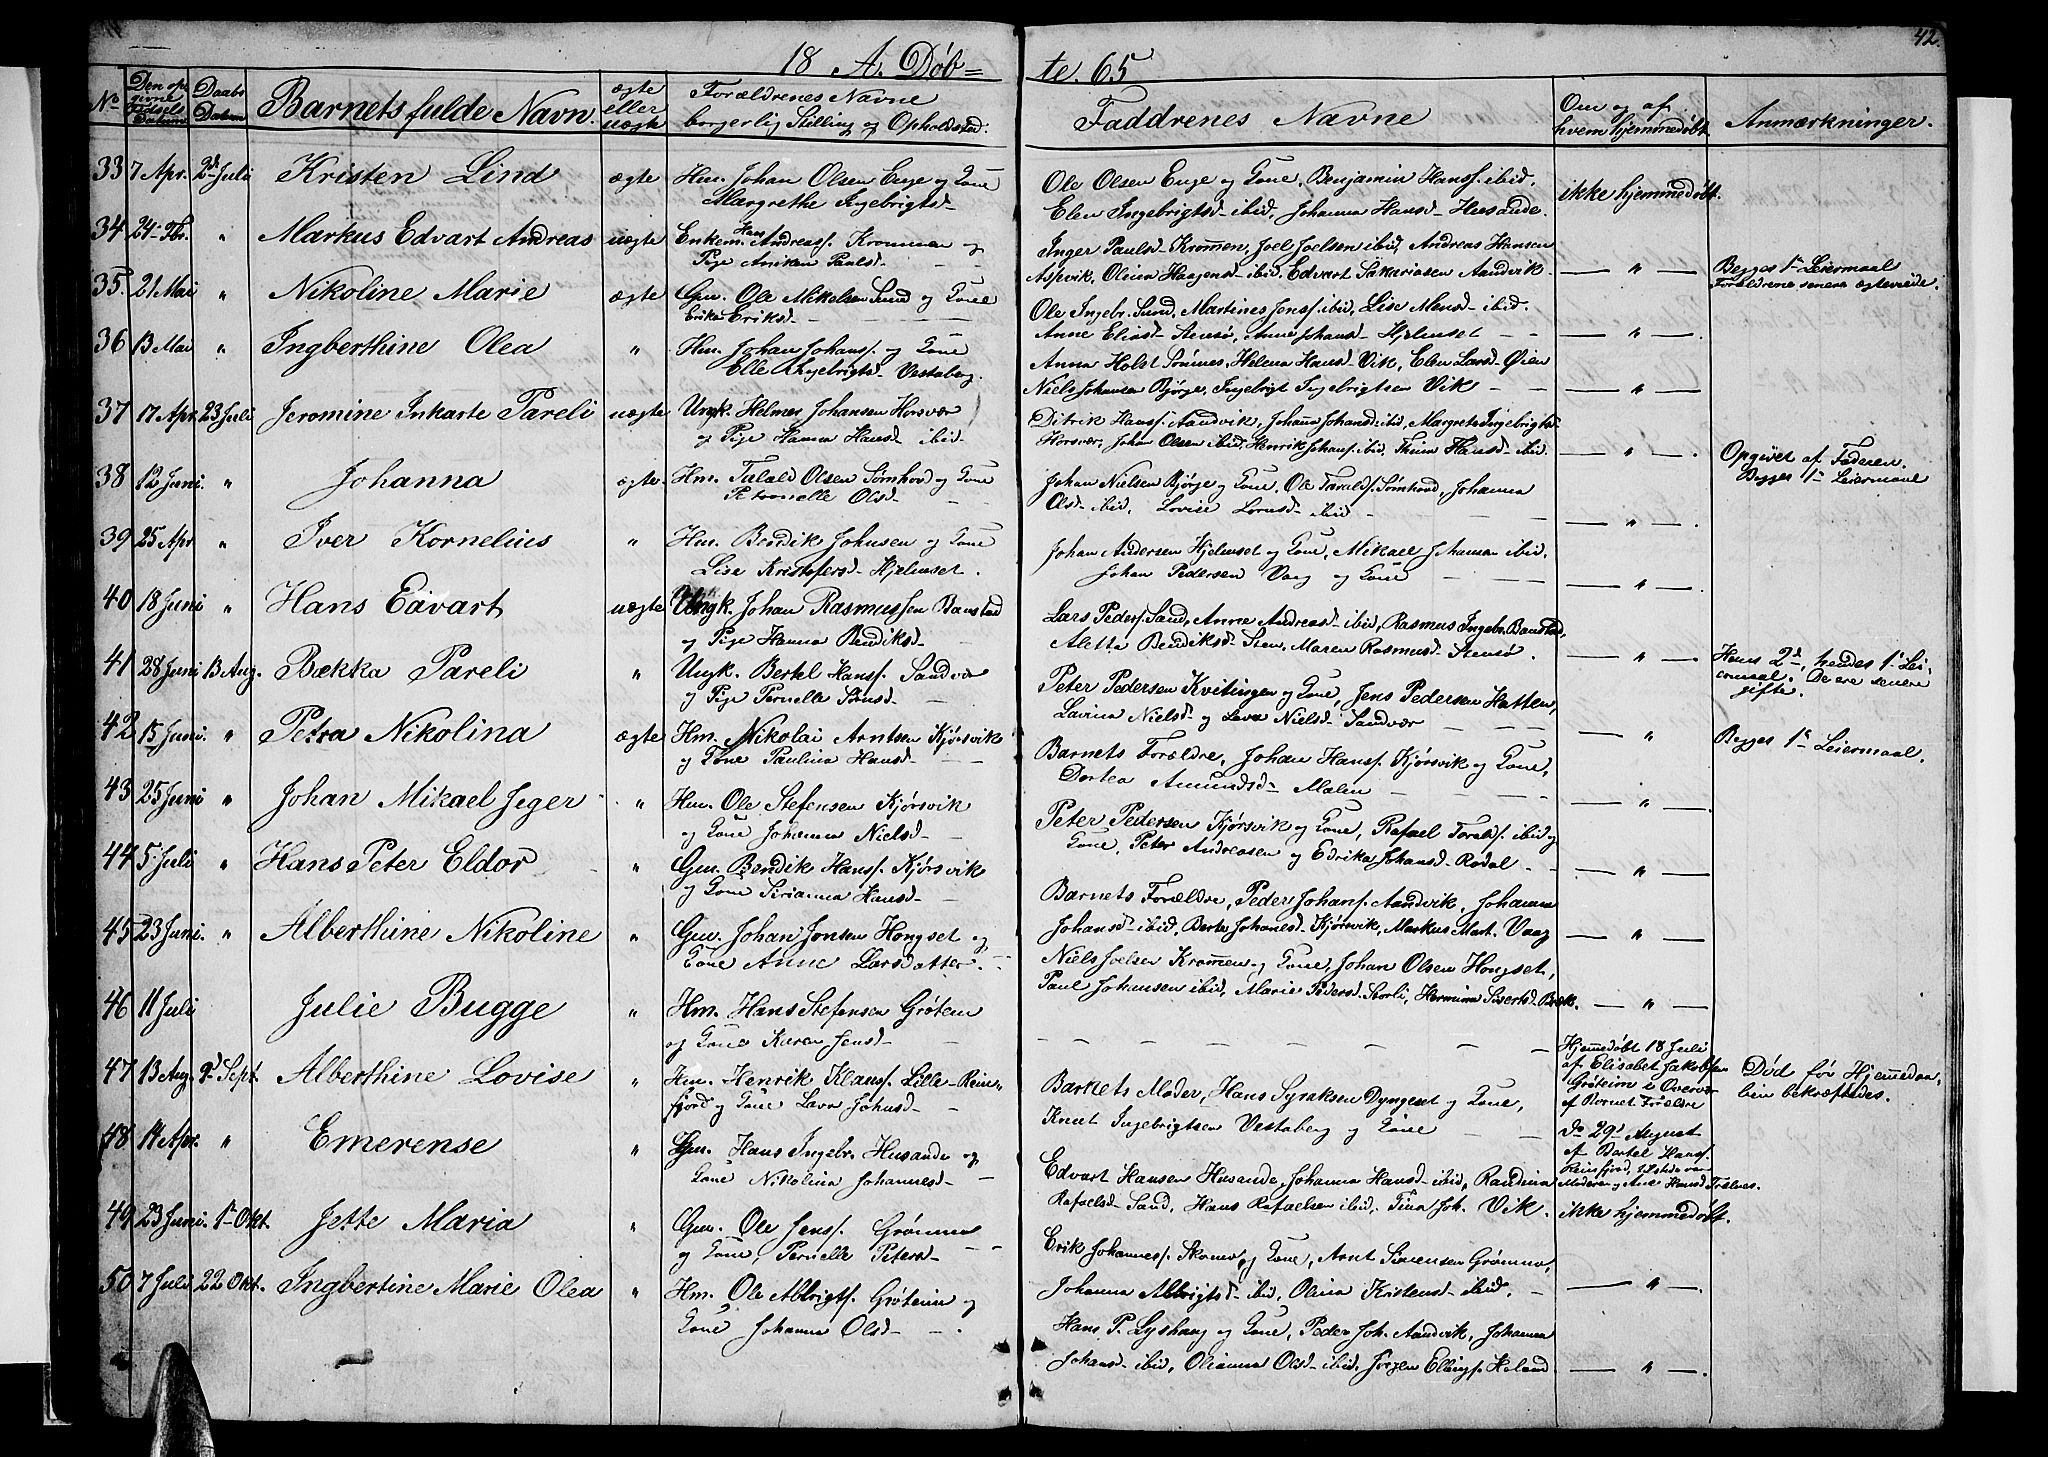 42.
18 A. Døb= te. 65
No
Den op-
givne
Fødsels
Datum
Daabs
Datum
Barnets fulde Navn.
ægte
eller
uægte
Forældrenes Navne
borgerlig Stilling og Opholdsted.
Faddrenes Navne
Om og af
hvem hjemmedøbt
Anmærkninger.
33 7 Apr. 2d Juli Kristen Lind ægte Hm. Johan Olsen Enge og Kone
Margrethe Ingebrigtsd-
Ole Olsen Enge og Kone, Benjamin Hanss. ibid,
Elen Ingebrigtsd- ibid, Johanna Hansd- Husande.
ikke hjemmedøbt.
34 24- Fbr. " Markus Edvart Andreas uægte Enkem. Hans Andreass. Krommen og
Pige Aniken Paulsd - -
Inger Paulsd- Krommen, Joel Joelsen ibid, Andreas Hansen
Aspvik, Olina Haagensd- ibid. Edvart Sakariasen Aandvik-
— " —
Begges 1ste Leiermaal
Forældrene senere ægteviede.
35. 21 Mai " Nikoline Marie ægte Gm. Ole Mikkelsen Sund og Kone
Erika Eriksd- - -
Ole Ingebr. Sund, Martines Jenss. ibid, Lise Mensd- ibid.
Anne Eliasd- Stensø, Anne Johansd- Hjelmset - -
— " —
36 13 Mai " Ingberthine Olea " Hm. Johan Johanss. og Kone
Elle Ingebrigtsd- Vestaberg.
Anna Holst Sømnes, Helena Hansd- Vik, Elen Larsd- Øien
Niels Johansen Bjørge, Ingebrigt Ingebrigtsen Vik - -
— " —
37 17 Apr. 23 Juli Jeromine Inkarte Pareli uægte Ungk. Helmer Johansen Horsvær
og Pige Hanna Hansd- ibid-
Ditrik Hanss. Aandvik, Johanna Johansd- ibid, Margrete Ingebrigtsd-
Horsvær, Johan Olsen ibid, Henrik Johans. ibid, Thina Hansd- ibid.
— " —
Opgivet af Faderen.
Begges 1ste Leiermaal
38 12 Juni. " Johanna ægte- Hm. Tulald Olsen Sømhovd og Kone
Petronelle Olsd- - -
Johan Nielsen Bjørge og Kone, Ole Taralds. Sømhovd, Johanna
Olsd- ibid, Lovise Lornsd- ibid -
— " —
39 25 Apr " Iver Kornelius " Hm. Bendik Johnsen og Kone
Lise Kristofersd- Hjelmset.
Johan Andersen Hjelmset og Kone, Mikael Johansen ibid,
Johan Pedersen Vaag og Kone - - -
— " —
40 18 Juni " Hans Edvart uægte Ungk. Johan Rasmussen Banstad
og Pige Hanna Bendiksd- -
Lars Peders. Sand, Anne Andreasd- ibid, Rasmus Ingebr. Banstad,
Aletta Bendiksd- Sten, Maren Rasmusd- Stensø.
— " —
Hans 2d, hendes 1ste Lei-
ermaal. De ere senere
gifte.
41 28 Juni 13 Aug. Bækka Pareli " Ungk. Bertel Hanss. Sandvær
og Pige Pernella Sørnsd- -
Peter Pedersen Kvitingen og Kone, Jens Pedersen Hatten,
Lavina Nielsd- og Lava Nielsd- Sandvær - -
— " —
Begges 1ste Leiermaal.
42 15 Juni. " Petra Nikolina ægte Hm. Nikolai Arntsen Kjørsvik
og Kone Paulina Hansd- - -
Barnets Forældre, Johan Hanss. Kjørsvik og Kone,
Dortea Amundsd- Malen - - -
— " —
43 25 Juni " Johan Mikael Jeger " Hm. Ole Stefensen Kjørsvik
og Kone Johanna Nielsd- -
Peter Pedersen Kjørsvik og Kone, Rafael Toralds. ibid og
Kone, Peter Andreasen og Edrika Johansd- Rodal - -
— " —
44 5. Juli " Hans Peter Eldor " Gm. Bendik Hanss. Kjørsvik
og Kone Sirianna Hansd- -
Barnets Forældre, Peder Johans. Aandvik, Johanna
Johansd- ibid, Berte Johanesd- Kjørsvik, Markus Mart. Vaag
— " —
45 23 Juni. " Alberthine Nikoline " Gm. Johan Jonsen Hongset og
Kone Anne Larsdatter. -
Niels Joelsen Krommen og Kone, Johan Olsen Hongset,
Paul Johansen ibid, Marie Pedersd- Storli, Hermina Sivertsd- Bræk.
— " —
46 11 Juli Julie Bugge " Hm. Hans Stefensen Grøtem
og Kone Karen Jensd- -
- - - - - - - -
Hjemmedøbt 18 Juli
af Elisabet Jakobsen
Grøteim i Overvær
af Barnets Forældre
Død før Hjemmedaa-
ben bekræftedes.
47 13 Aug. 9d Sept. Alberthine Lovise " Hm. Henrik Klauss. Lille-Rein-
fjord og Kone Lava Johnsd- -
Barnets Moder, Hans Syraksen Dyngent og Kone,
Knut Ingebrigtsen Vestaberg og Kone - -
Do 29d August
af Bertel Hanss.
Reinsfjord, i Stede var
Moderen og Ane Hansd Trælnes.
48 14 Apr. " Emerense " Gm. Hans Ingebr. Husande og
Kone Nikolina Johannesd- -
Edvart Hansen Husande, Johanna Hansd- ibid, Randina
Rafaelsd- Sand, Hans Rafaelsen ibid, Tina Joh. Vik.
ikke hjemmedøbt.
49 23 Juni. 1ste Okt. Jette Maria " Gm. Ole Jenss. Grønmo
og Kone, Pernelle Petersd- - -
Erik Johanness. Skomo, og Kone, Arnt Sørensen Grønmo,
Johanna Albrigtsd- ibid, Olina Kristensd- ibid. -
— " —
50 7 Juli 22 Okt. Ingbertine Marie Olea " Hm. Ole Albrigts. Grøteim og
Kone Johanna Olsd- - -.
Hans P. Lyshaug og Kone, Peder Joh. Aandvik, Johanna
Johansd- ibid, Olianna Olsd- ibid, Jørgen Ellings. Heland
— " —